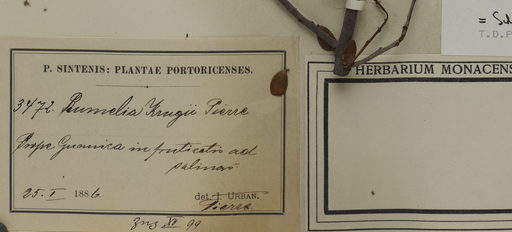 = Sid
T. D. P
P. SINTENIS: PLANTAE PORTORICENSES.
HERBARIUM MONACENS
3472. Bumelia Krugii Pierre
Prope Guanica in fruticetis ad
salinas
25. I 1886
det. I. URBAN.
Pierre
XI 99